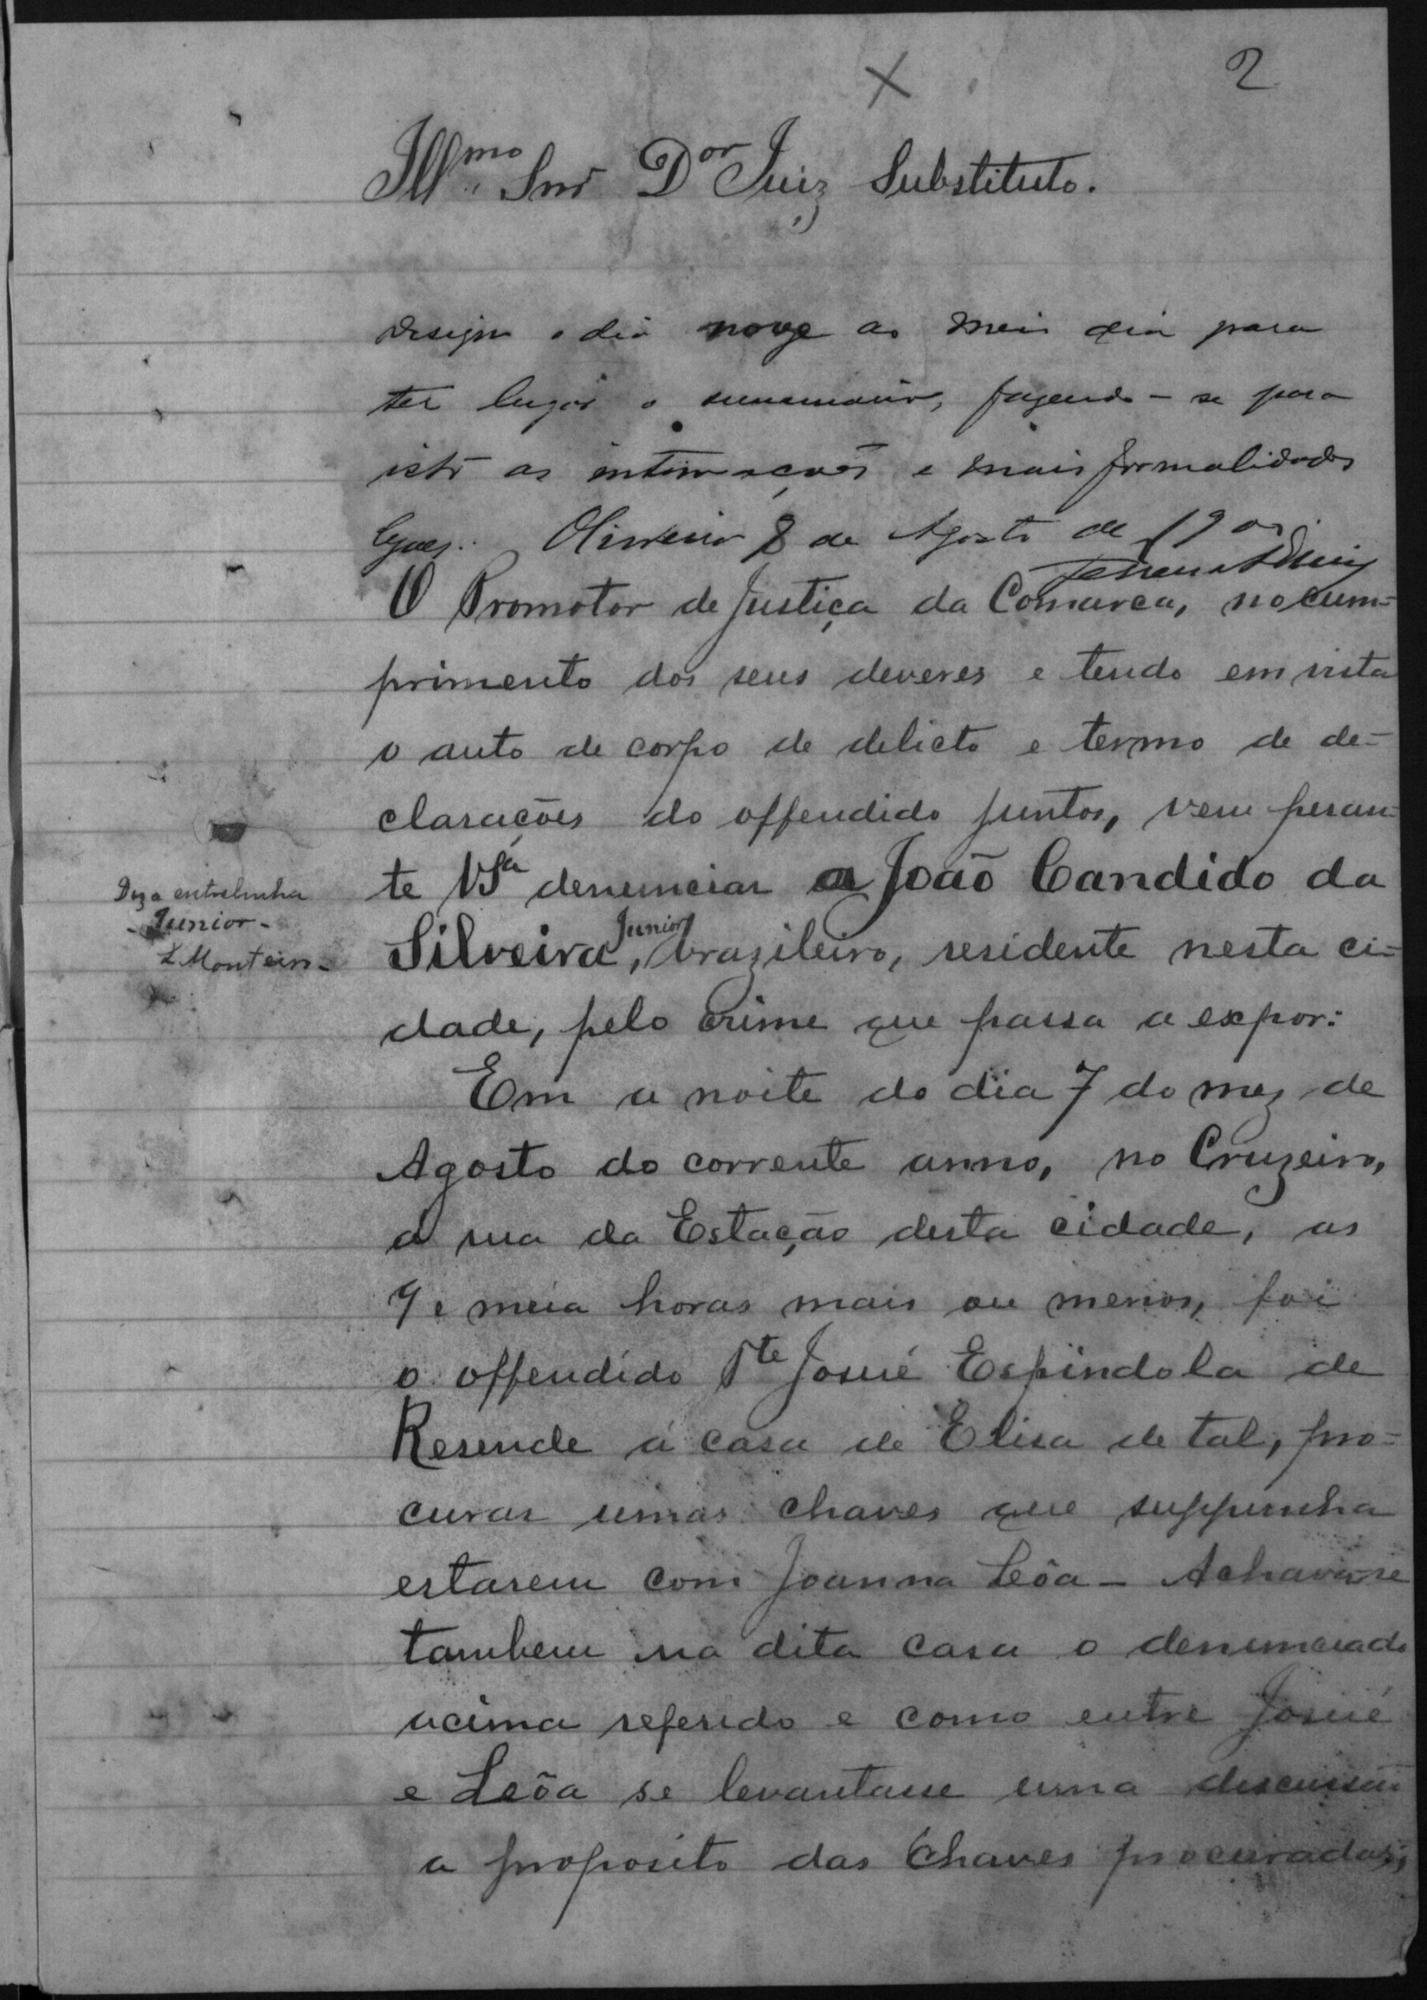 2
Ill.mo Snr Dor Juiz Substituto.
Designo o dia nove ao meio dia para
ter lugar o summario, fazendo-se para
isto as intimações e mais formalidades
legaes. Oliveira 8 de Agosto de 190
O Promotor de Justiça da Comarca, no cum-
primento dos seus deveres e tendo em vista
o auto de corpo de delicto e termo de de-
clarações do offendido juntos, vem peran-
te VSa denunciar a João Candido da
Silveira Junior, brazileiro, residente nesta ci-
dade, pelo crime que passa a expor:
Diz a entrelinha
- Junior -
L Monteiro -
Em a noite do dia 7 do mez de
Agosto do corrente anno, no Cruzeiro,
á rua da Estação desta cidade, as
7 e meia horas mais ou menos, foi
o offendido Josué Espindola de
Resende á casa de Elisa de tal, pro-
curar umas chaves que suppunha
estarem com Joanna Leôa - Achava-se
tambem na dita casa o denunciado
acima referido e como entre Josué
e Leôa se levantasse uma discussão
a proposito das chaves procuradas,